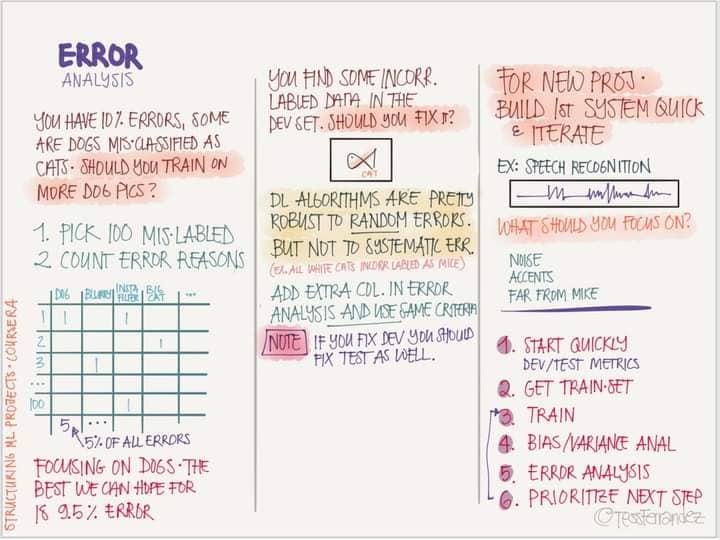 ERROR
ANALYSIS
YOU HAVE 10% ERRORS, SOME
ARE DOGS MIS-CLASSIFIED AS
CATS. SHOULD YOU TRAIN ON
MORE DOG PICS?
1. PICK 100 MIS-LABLED
2 COUNT ERROR REASONS
DOG BLURRY INSTA FILTER BIG CAT ...
1 | |
2 |
3 |
...
100 |
5 ...
5% OF ALL ERRORS
FOCUSING ON DOGS - THE
BEST WE CAN HOPE FOR
IS 9.5% ERROR
STRUCTURING ML PROJECTS - COURSERA
YOU FIND SOME INCORR.
LABLED DATA IN THE
DEV SET. SHOULD YOU FIX IT?
CAT
DL ALGORITHMS ARE PRETTY
ROBUST TO RANDOM ERRORS.
BUT NOT TO SYSTEMATIC ERR.
(EX. ALL WHITE CATS INCORR LABLED AS MICE)
ADD EXTRA COL. IN ERROR
ANALYSIS AND USE SAME CRITERIA
NOTE IF YOU FIX DEV YOU SHOULD
FIX TEST AS WELL.
FOR NEW PROJ.
BUILD 1st SYSTEM QUICK
& ITERATE
EX: SPEECH RECOGNITION
WHAT SHOULD YOU FOCUS ON?
NOISE
ACCENTS
FAR FROM MIKE
1. START QUICKLY
DEV/TEST METRICS
2. GET TRAIN-SET
3. TRAIN
4. BIAS/VARIANCE ANAL
5. ERROR ANALYSIS
6. PRIORITIZE NEXT STEP
©TessFerrandez